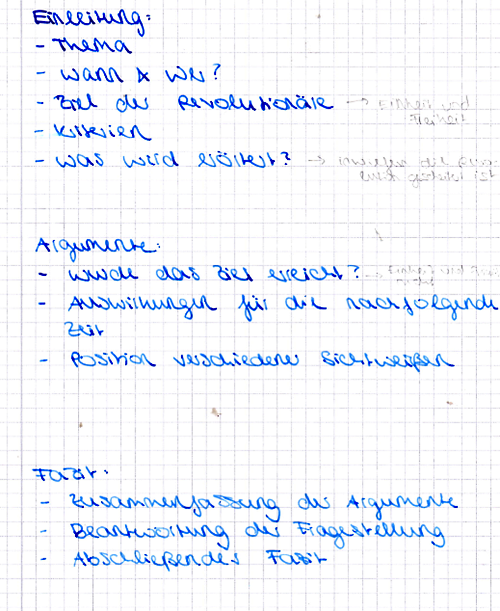 Einleitung:
- Thema
- wann & wer?
- Ziel der Revolutionäre → Einheit und
Freiheit
- Kriterien
- was wird erörtert? → inwiefern die
ist
Argumente:
- wurde das Ziel erreicht? →
- Auswirkungen für die nachfolgende
Zeit
- Position verschiedener Sichtweißen
Fazit:
- Zusammenfassung der Argumente
- Beantwortung der Fragestellung
- Abschließendes Fazit